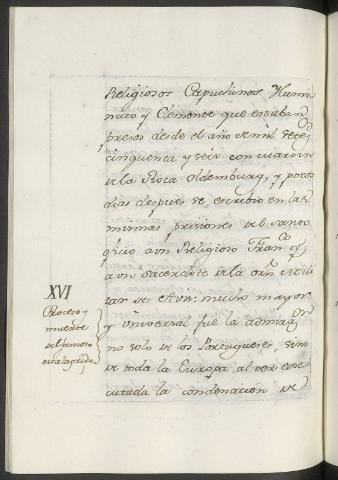 Religiosos Capuchinos Ilumi
nato y Clemente que estaban
presos desde el año de mil sete
cinquenta y seis con
de la Roca Oldemburg, y pocos
dias despues se escribio en las
mismas prisiones del santo
oficio a un Religioso Fran.co y
a un sacerdote de la orn Mili
tar de mucho mayor
y universal fue la admiraon
no solo de los Portugueses, sino
de toda la Europa, al ver exe
cutada la condenacion de
XVI
Proceso y
muerte
del famoso